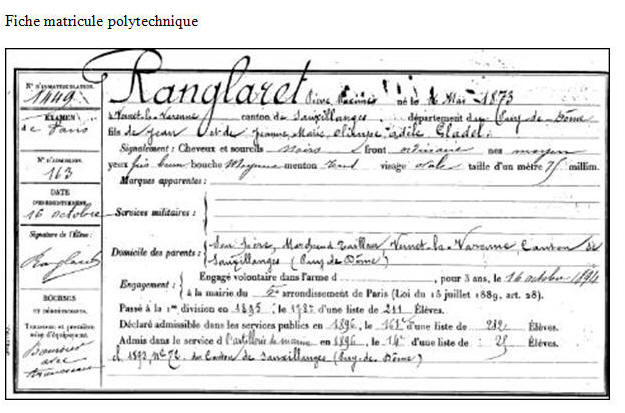 Fiche matricule polytechnique
N° D'IMMATRICULATION.
1449
EXAMEN
de Paris
N° D'ADMISSION.
163
DATE
16 octobre
Signature de l'Élève:
Ranglaret
BOURSES
Boursier
avec
trousseau
Ranglaret Pierre, né le 16 Mai 1873
à Vernet-la-Varenne, canton de Sauxillanges, département du Puy-de-Dôme
fils de Jean et de Jeanne, Marie, Adèle Gladel.
Signalement: Cheveux et sourcils noirs front ordinaire nez moyen
yeux gris brun bouche Moyenne menton rond visage ovale taille d'un mètre 75 millim.
Marques apparentes:
Services militaires:
Domicile des parents: Son père, Marchand Tailleur, Vernet-la-Varenne, Canton de
Sauxillanges (Puy de Dôme)
Engagement: Engagé volontaire dans l'arme d , pour 3 ans, le 16 octobre 1894
à la mairie du 5e arrondissement de Paris (Loi du 15 juillet 1889, art. 28).
Passé à la 1re division en 1895, le d'une liste de 211 Élèves.
Déclaré admissible dans les services publics en 1896, le 161e d'une liste de 212 Élèves.
Admis dans le service d'artillerie de marine en 1896, le 14e d'une liste de : 25 Élèves.
Cl. 1893, N° 72 du Canton de Sauxillanges (Puy-de-Dôme)